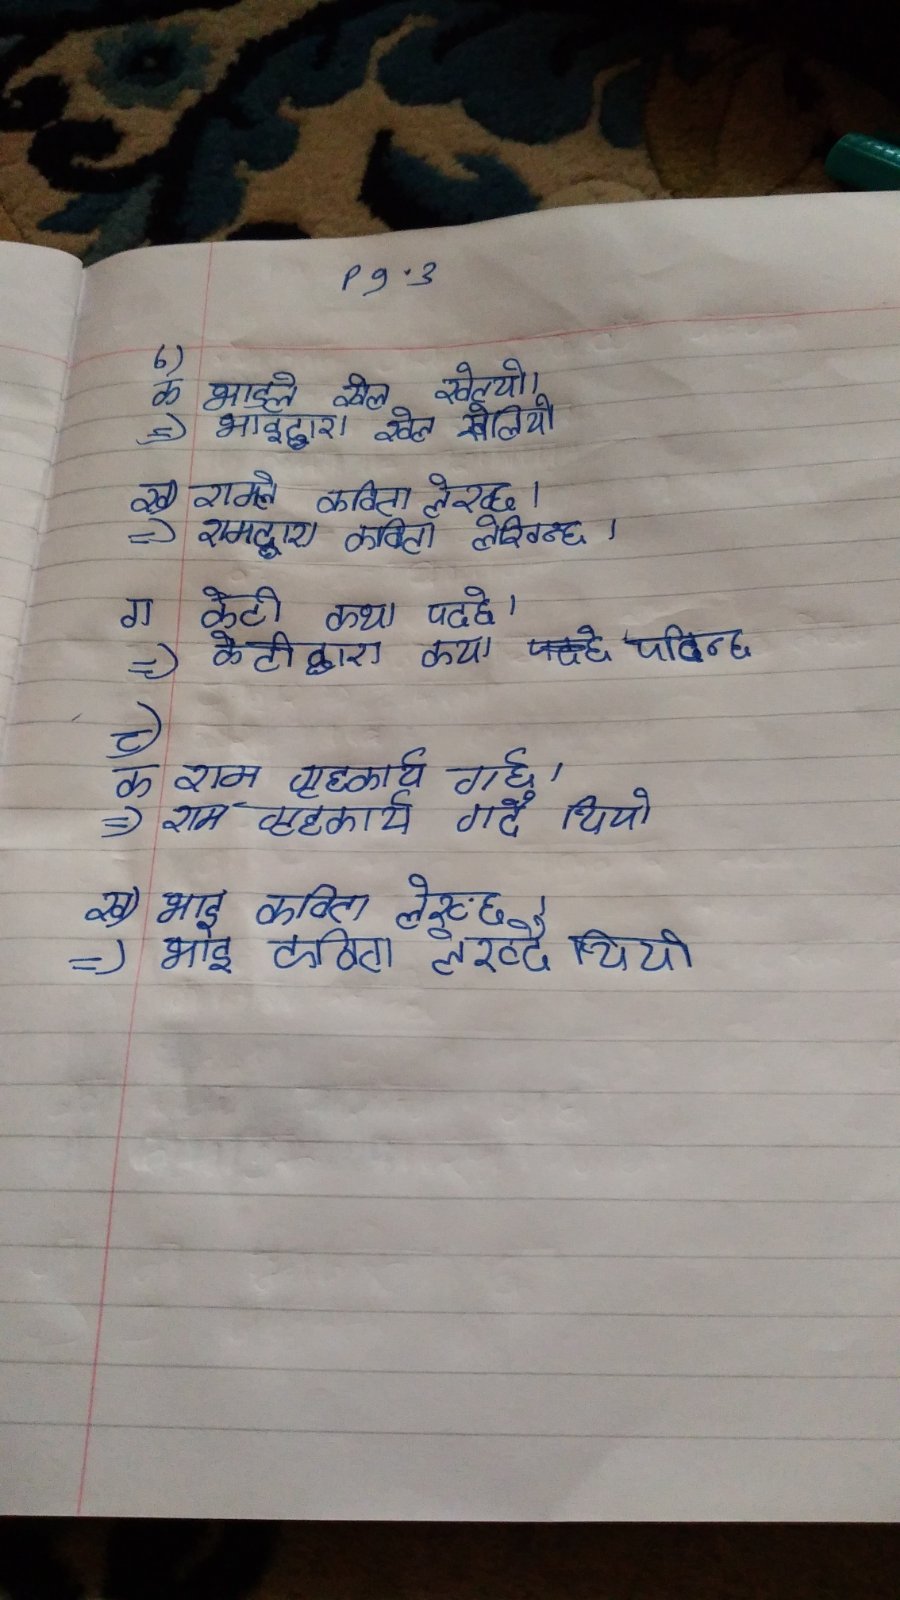 Pg.3
6)
क भाइले खेल खेल्यो।
=> भाइद्वारा खेल खेलियो
ख) रामले कविता लेख्छ।
=> रामद्वारा कविता लेखिन्छ।
ग केटी कथा पढ्छे।
=> केटीद्वारा कथा पढ्छे पढिन्छ
८)
क राम गृहकार्य गर्छ।
=> राम गृहकार्य गर्दै थियो
ख) भाइ कविता लेख्छ।
=> भाइ कविता लेख्दै थियो